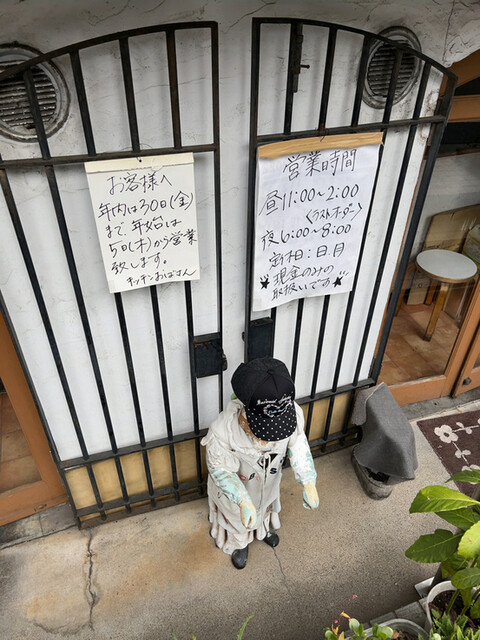 お客様へ
年内は30日(金)
まで、年始は
5日(木)から営業
致します。
キッチンおばさん
営業時間
昼11:00~2:00
<ラストオーダー>
夜6:00~8:00
定休:日.月
★現金のみの★
取扱いです